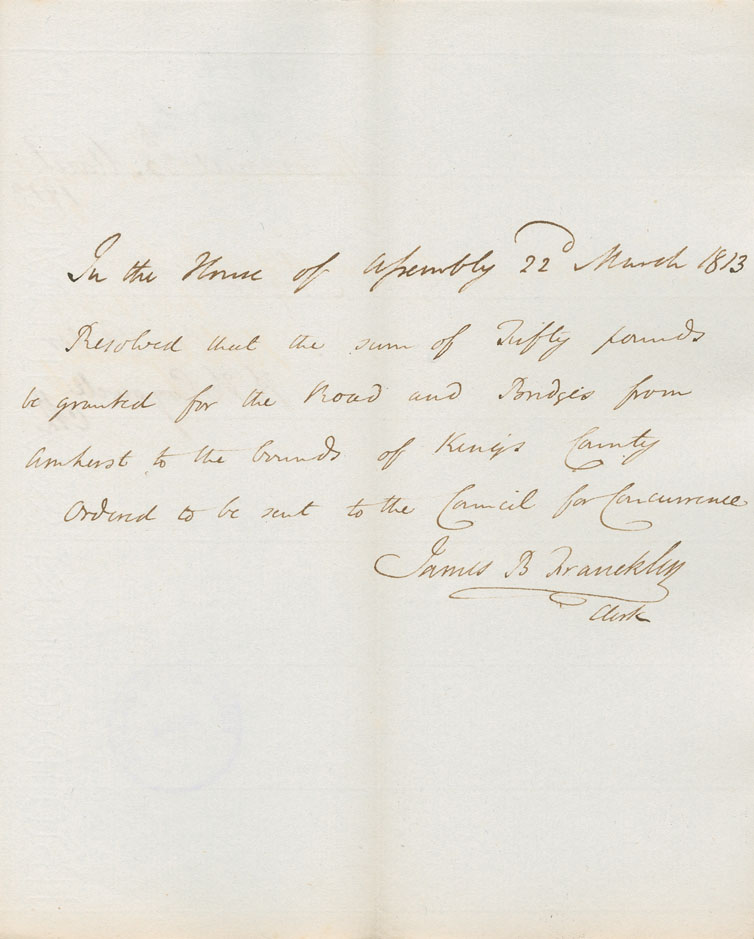 In the House of Assembly 22d March 1813
Resolved that the sum of Fifty pounds
be granted for the Road and Bridges from
Amherst to the bounds of Kings County
Ordered to be sent to the Council for Concurrence
James B Franckling
Clerk